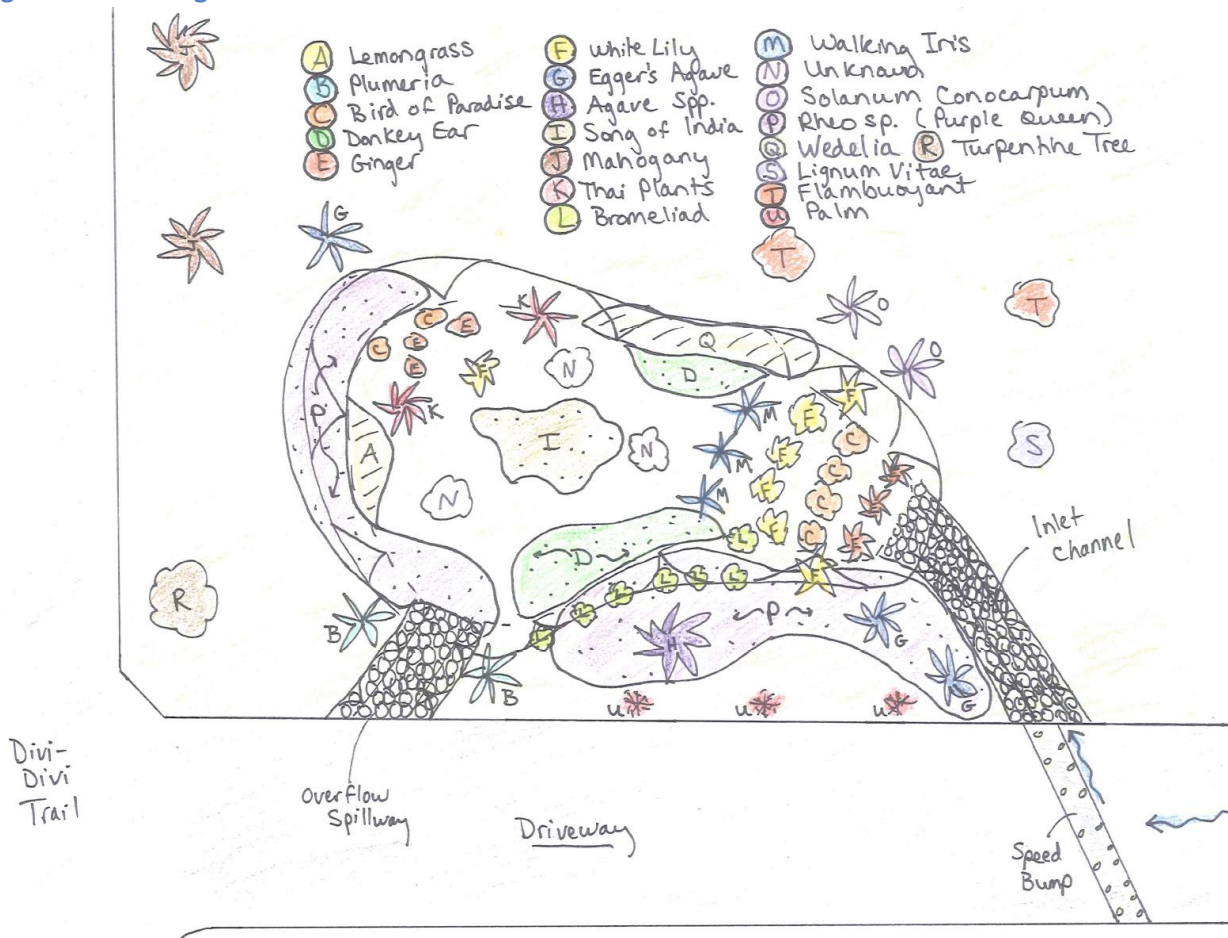 A Lemongrass
B Plumeria
C Bird of Paradise
D Donkey Ear
E Ginger
F White Lily
G Egger's Agave
H Agave Spp.
I Song of India
J Mahogany
K Thai Plants
L Bromeliad
M Walking Iris
N Unknown
O Solanum Conocarpum
P Rheo sp. (Purple Queen)
Q Wedelia
R Turpentine Tree
S Lignum Vitae
T Flambuoyant
U Palm
J
J
G
T
T
K
O
O
C
E
C
E
E
F
N
Q
D
K
P
A
I
N
N
M
M
M
F
F
F
F
F
F
C
C
C
C
E
E
E
S
Inlet
Channel
R
B
B
D
L
L
L
L
L
L
L
H
P
G
G
U
U
U
Divi-
Divi
Trail
Overflow
Spillway
Driveway
Speed
Bump